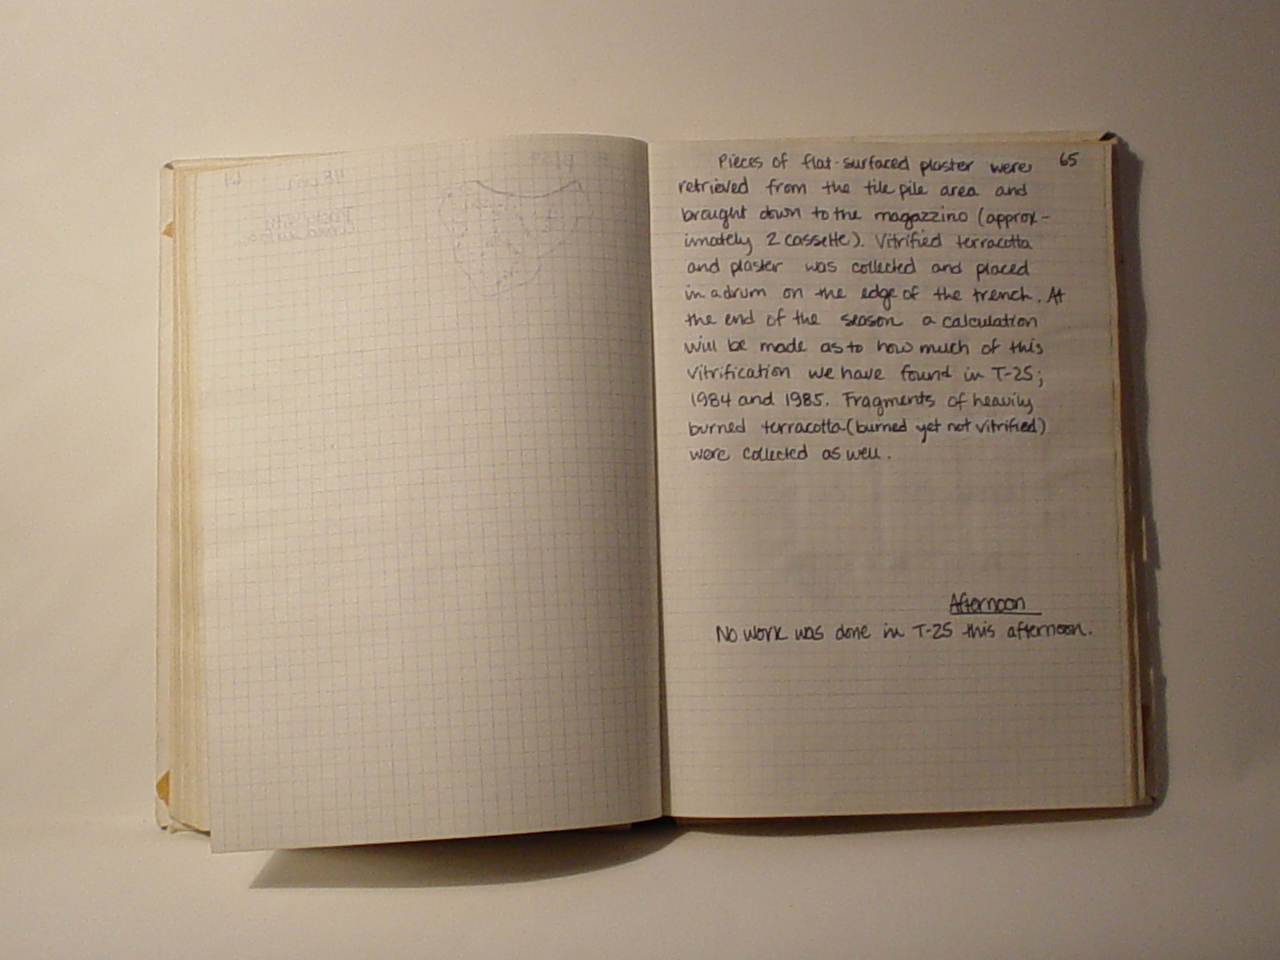 65
Pieces of flat-surfaced plaster were
retrieved from the tile pile area and
brought down to the magazzino (approx-
imately 2 cassette). Vitrified terracotta
and plaster was collected and placed
in a drum on the edge of the trench. At
the end of the season a calculation
will be made as to how much of this
vitrification we have found in T-25;
1984 and 1985. Fragments of heavily
burned terracotta (burned yet not vitrified)
were collected as well.
Afternoon
No work was done in T-25 this afternoon.